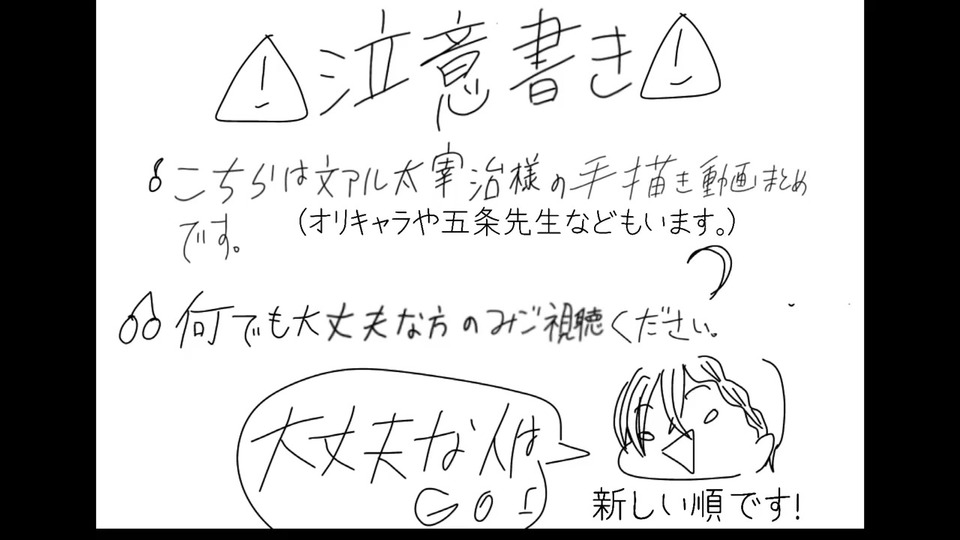 注意書き
こちらは文アル太宰治様の手描き動画まとめ
です。
(オリキャラや五条先生などもいます。)
何でも大丈夫な方のみご視聴ください。
大丈夫な人は
GO!
新しい順です!